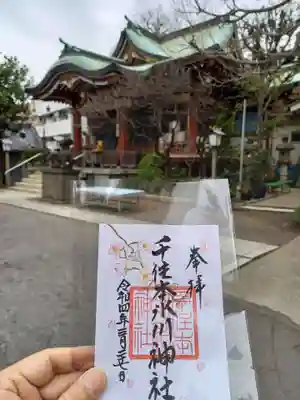 奉拝
千住本氷川神社
令和四年二月二十七日